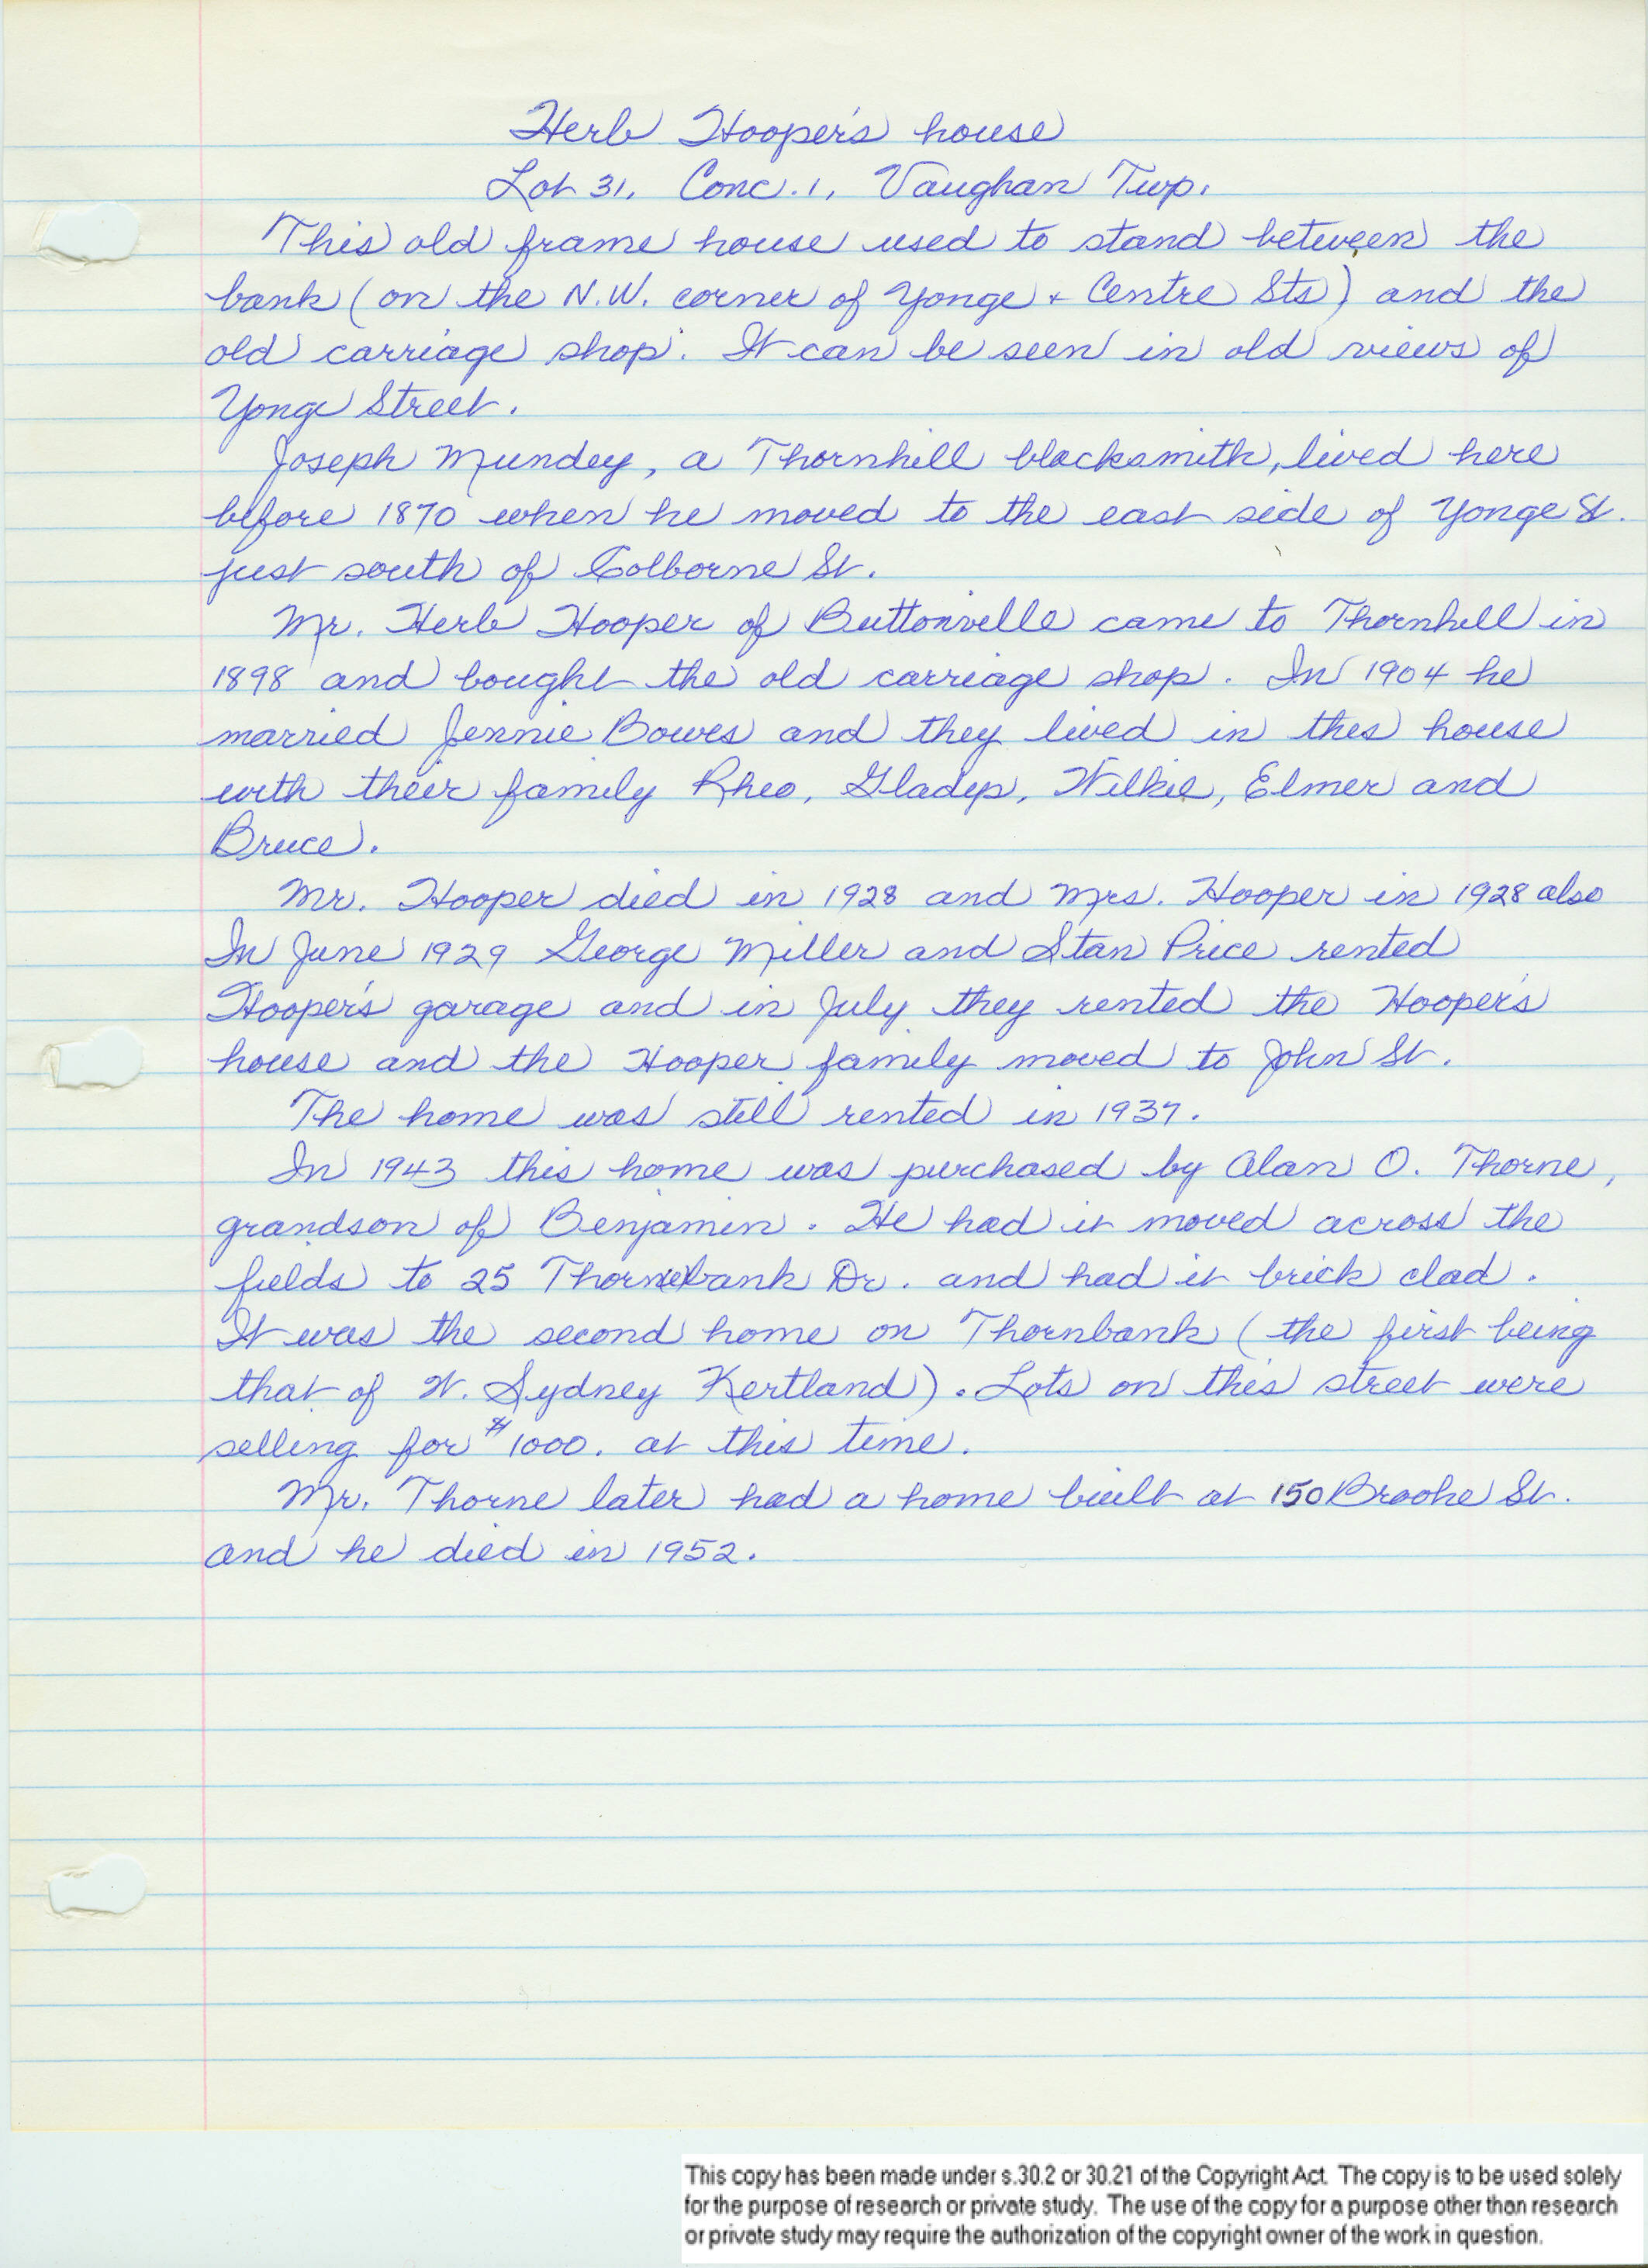 Herb Hooper's house
Lot 31, Conc. 1, Vaughan Twp.
This old frame house used to stand between the
bank (on the N.W. corner of Yonge + Centre Sts) and the
old carriage shop. It can be seen in old views of
Yonge Street.
Joseph Mundey, a Thornhill blacksmith, lived here
before 1870 when he moved to the east side of Yonge St.
just south of Colborne St.
Mr. Herb Hooper of Buttonville came to Thornhill in
1898 and bought the old carriage shop. In 1904 he
married Jennie Bowes and they lived in this house
with their family Rheo, Gladys, Wilkie, Elmer and
Bruce.
Mr. Hooper died in 1928 and Mrs. Hooper in 1928 also
In June 1929 George Miller and Stan Price rented
Hooper's garage and in July they rented the Hooper's
house and the Hooper family moved to John St.
The home was still rented in 1937.
In 1943 this home was purchased by Alan O. Thorne,
grandson of Benjamin. He had it moved across the
fields to 25 Thornbank Dr. and had it brick clad.
It was the second home on Thornbank (the first being
that of W. Sydney Kertland). Lots on this street were
selling for $1000. at this time.
Mr. Thorne later had a home built at 150 Brooke St.
and he died in 1952.
This copy has been made under s.30.2 or 30.21 of the Copyright Act. The copy is to be used solely
for the purpose of research or private study. The use of the copy for a purpose other than research
or private study may require the authorization of the copyright owner of the work in question.